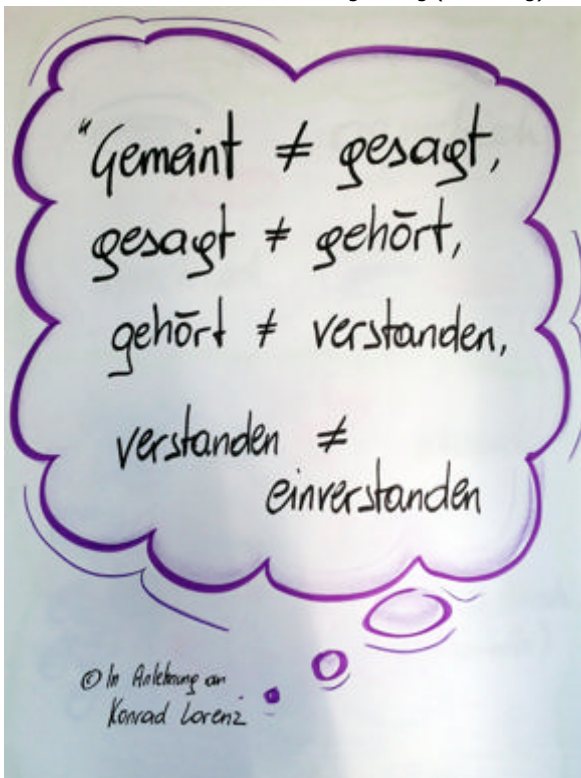 "Gemeint ≠ gesagt,
gesagt ≠ gehört,
gehört ≠ verstanden,
verstanden ≠
einverstanden
© In Anlehnung an
Konrad Lorenz